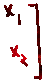 x₁
x₂